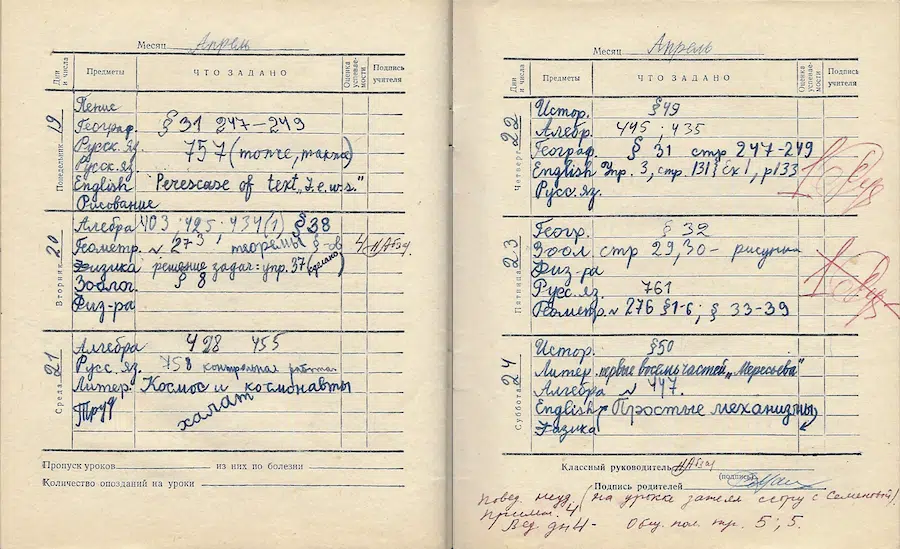 Месяц Апрель
Дни и числа Предметы ЧТО ЗАДАНО Оценка успеваемости Подпись учителя
Понедельник 19
Пение
Географ. § 31 247–249
Русск. яз. 757 (
Русск. яз.
English of text
Рисование
Вторник 20
Алгебра 403; 425; 434(1) § 38
Геометр. № 273 теоремы §
Физика решение задач: упр. 37 (сделано)
Зоолог. § 8
Физ-ра
Среда 21
Алгебра 428 455
Русс. яз. 758 контрольная работа
Литер. Космос и космонавты
Труд халат
Пропуск уроков из них по болезни
Количество опозданий на уроки
Месяц Апрель
Дни и числа Предметы ЧТО ЗАДАНО Оценка успеваемости Подпись учителя
Четверг 22
Истор. §49
Алгебр. 445; 435
Географ. § 31 стр 247-249
English Упр. 3, стр. 131 Ex 1, p 133
Русс. яз.
Пятница 23
Геогр. § 32
Зоол стр 29,30- рисунки
Физ-ра
Русс. яз. 761
Геометр. № 276 §1-6; § 33-39
Суббота 24
Истор. §50
Литер. первые восемь частей „Мересьева"
Алгебра № 447.
English
Физика (Простые механизмы)
Классный руководитель
(подпись)
Подпись родителей
Повед. неуд. (на уроке затеял ссору с Семеновым)
Прилеж. 4
Вед. дн 4- Общ. пол. тр. 5; 5.